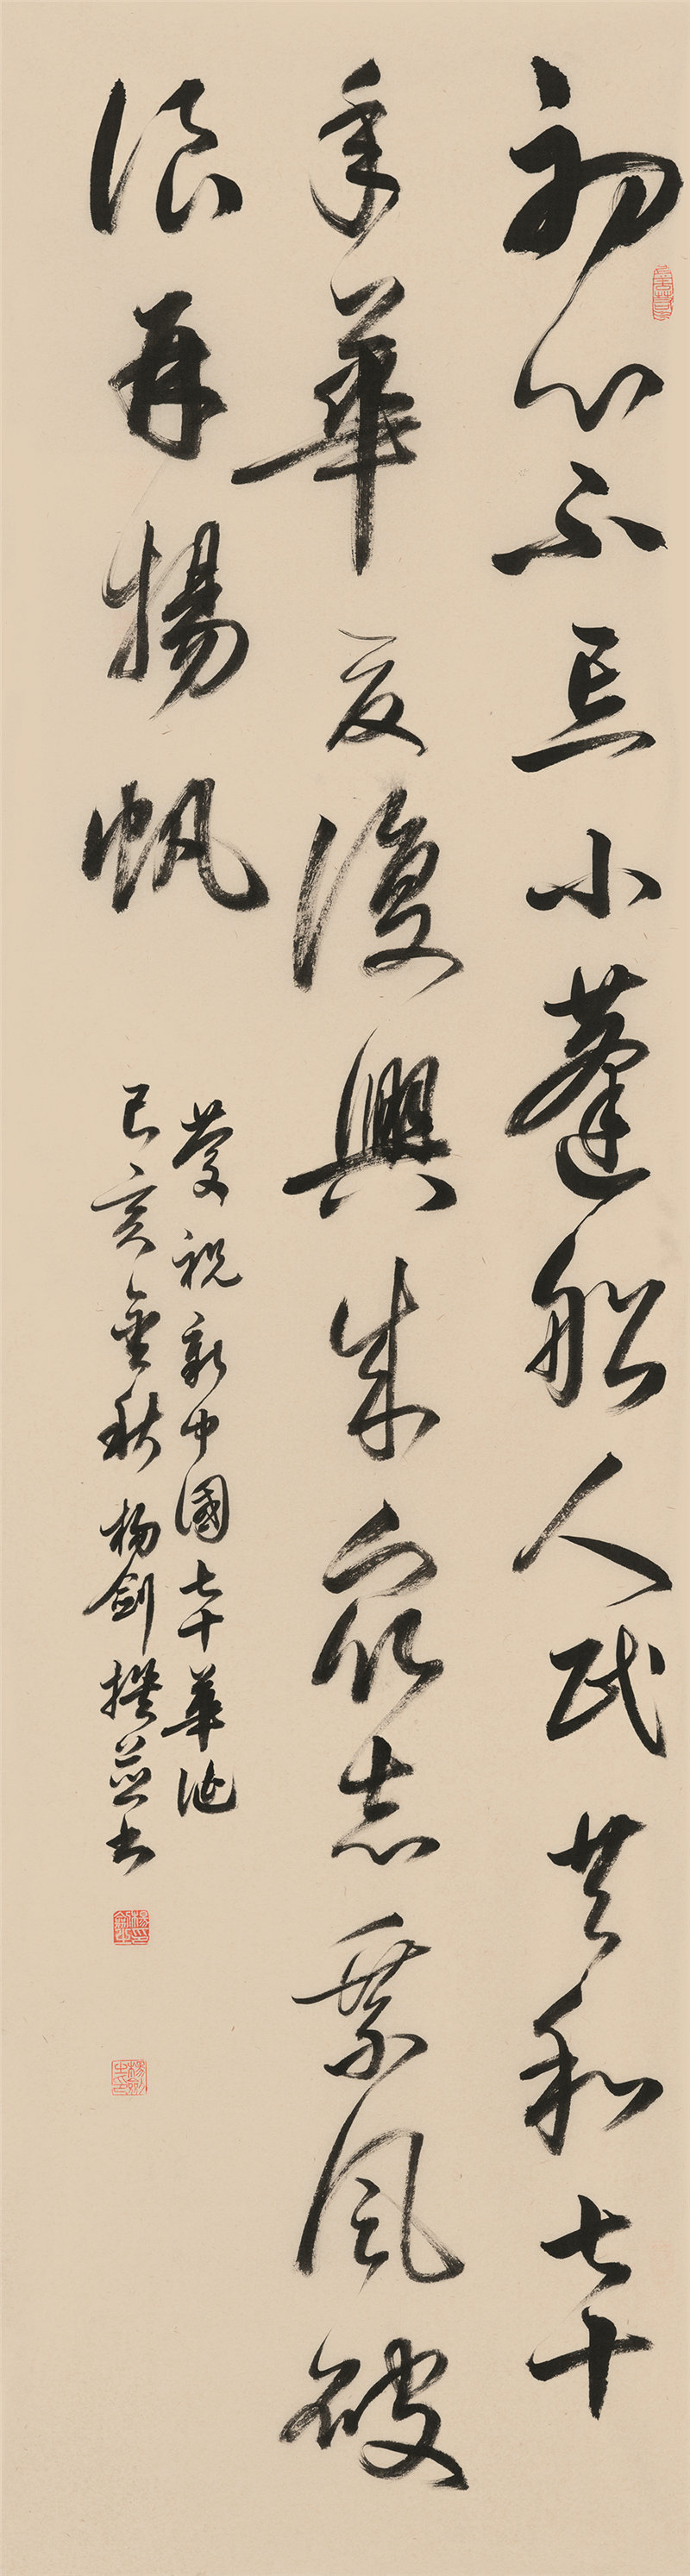 初心不忘小蓬船人民共和七十
年華夏復興成眾志乘風破
浪再揚帆
慶祝新中國七十華誕
己亥金秋楊劍撰並書